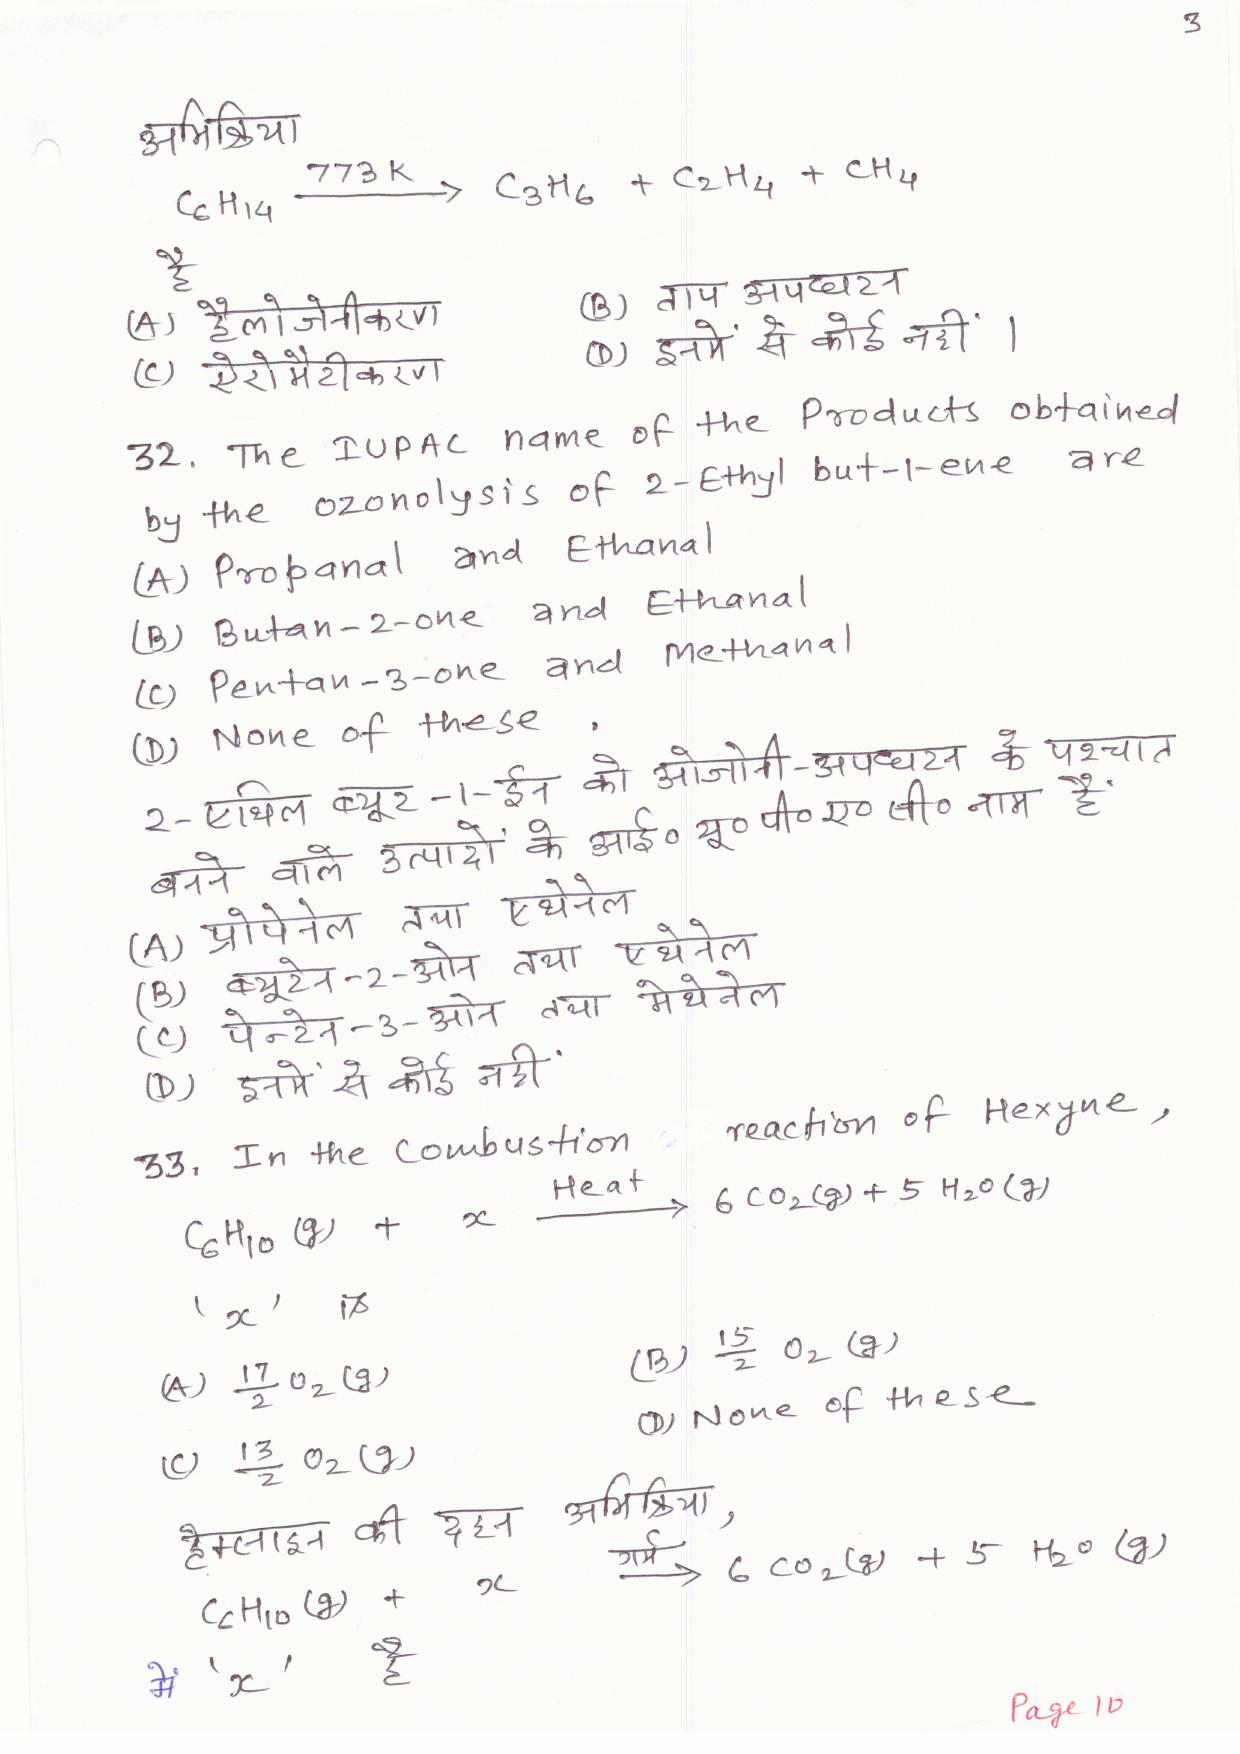 3
अभिक्रिया
C6H14 773K → C3H6 + C2H4 + CH4
है
(A) हैलोजेनीकरण (B) ताप अपघटन
(C) ऐरोमैटीकरण (D) इनमें से कोई नहीं ।
32. The IUPAC name of the Products obtained
by the ozonolysis of 2-Ethyl but-1-ene are
(A) Propanal and Ethanal
(B) Butan-2-one and Ethanal
(C) Pentan-3-one and Methanal
(D) None of these .
2-एथिल ब्यूट-1-ईन को ओजोनी-अपघटन के पश्चात
बनने वाले उत्पादों के आई० यू० पी० ए० सी० नाम हैं
(A) प्रोपेनेल तथा एथेनेल
(B) ब्यूटेन-2-ओन तथा एथेनेल
(C) पेन्टेन-3-ओन तथा मेथेनेल
(D) इनमें से कोई नहीं
33. In the Combustion reaction of Hexyne,
C6H10 (g) + x Heat → 6 CO2(g) + 5 H2O (g)
'x' is
(A) 17/2 O2 (g) (B) 15/2 O2 (g)
(C) 13/2 O2 (g) (D) None of these
हैक्साइन की दहन अभिक्रिया,
C6H10 (g) + x गर्म → 6 CO2(g) + 5 H2O (g)
में 'x' है
Page 10